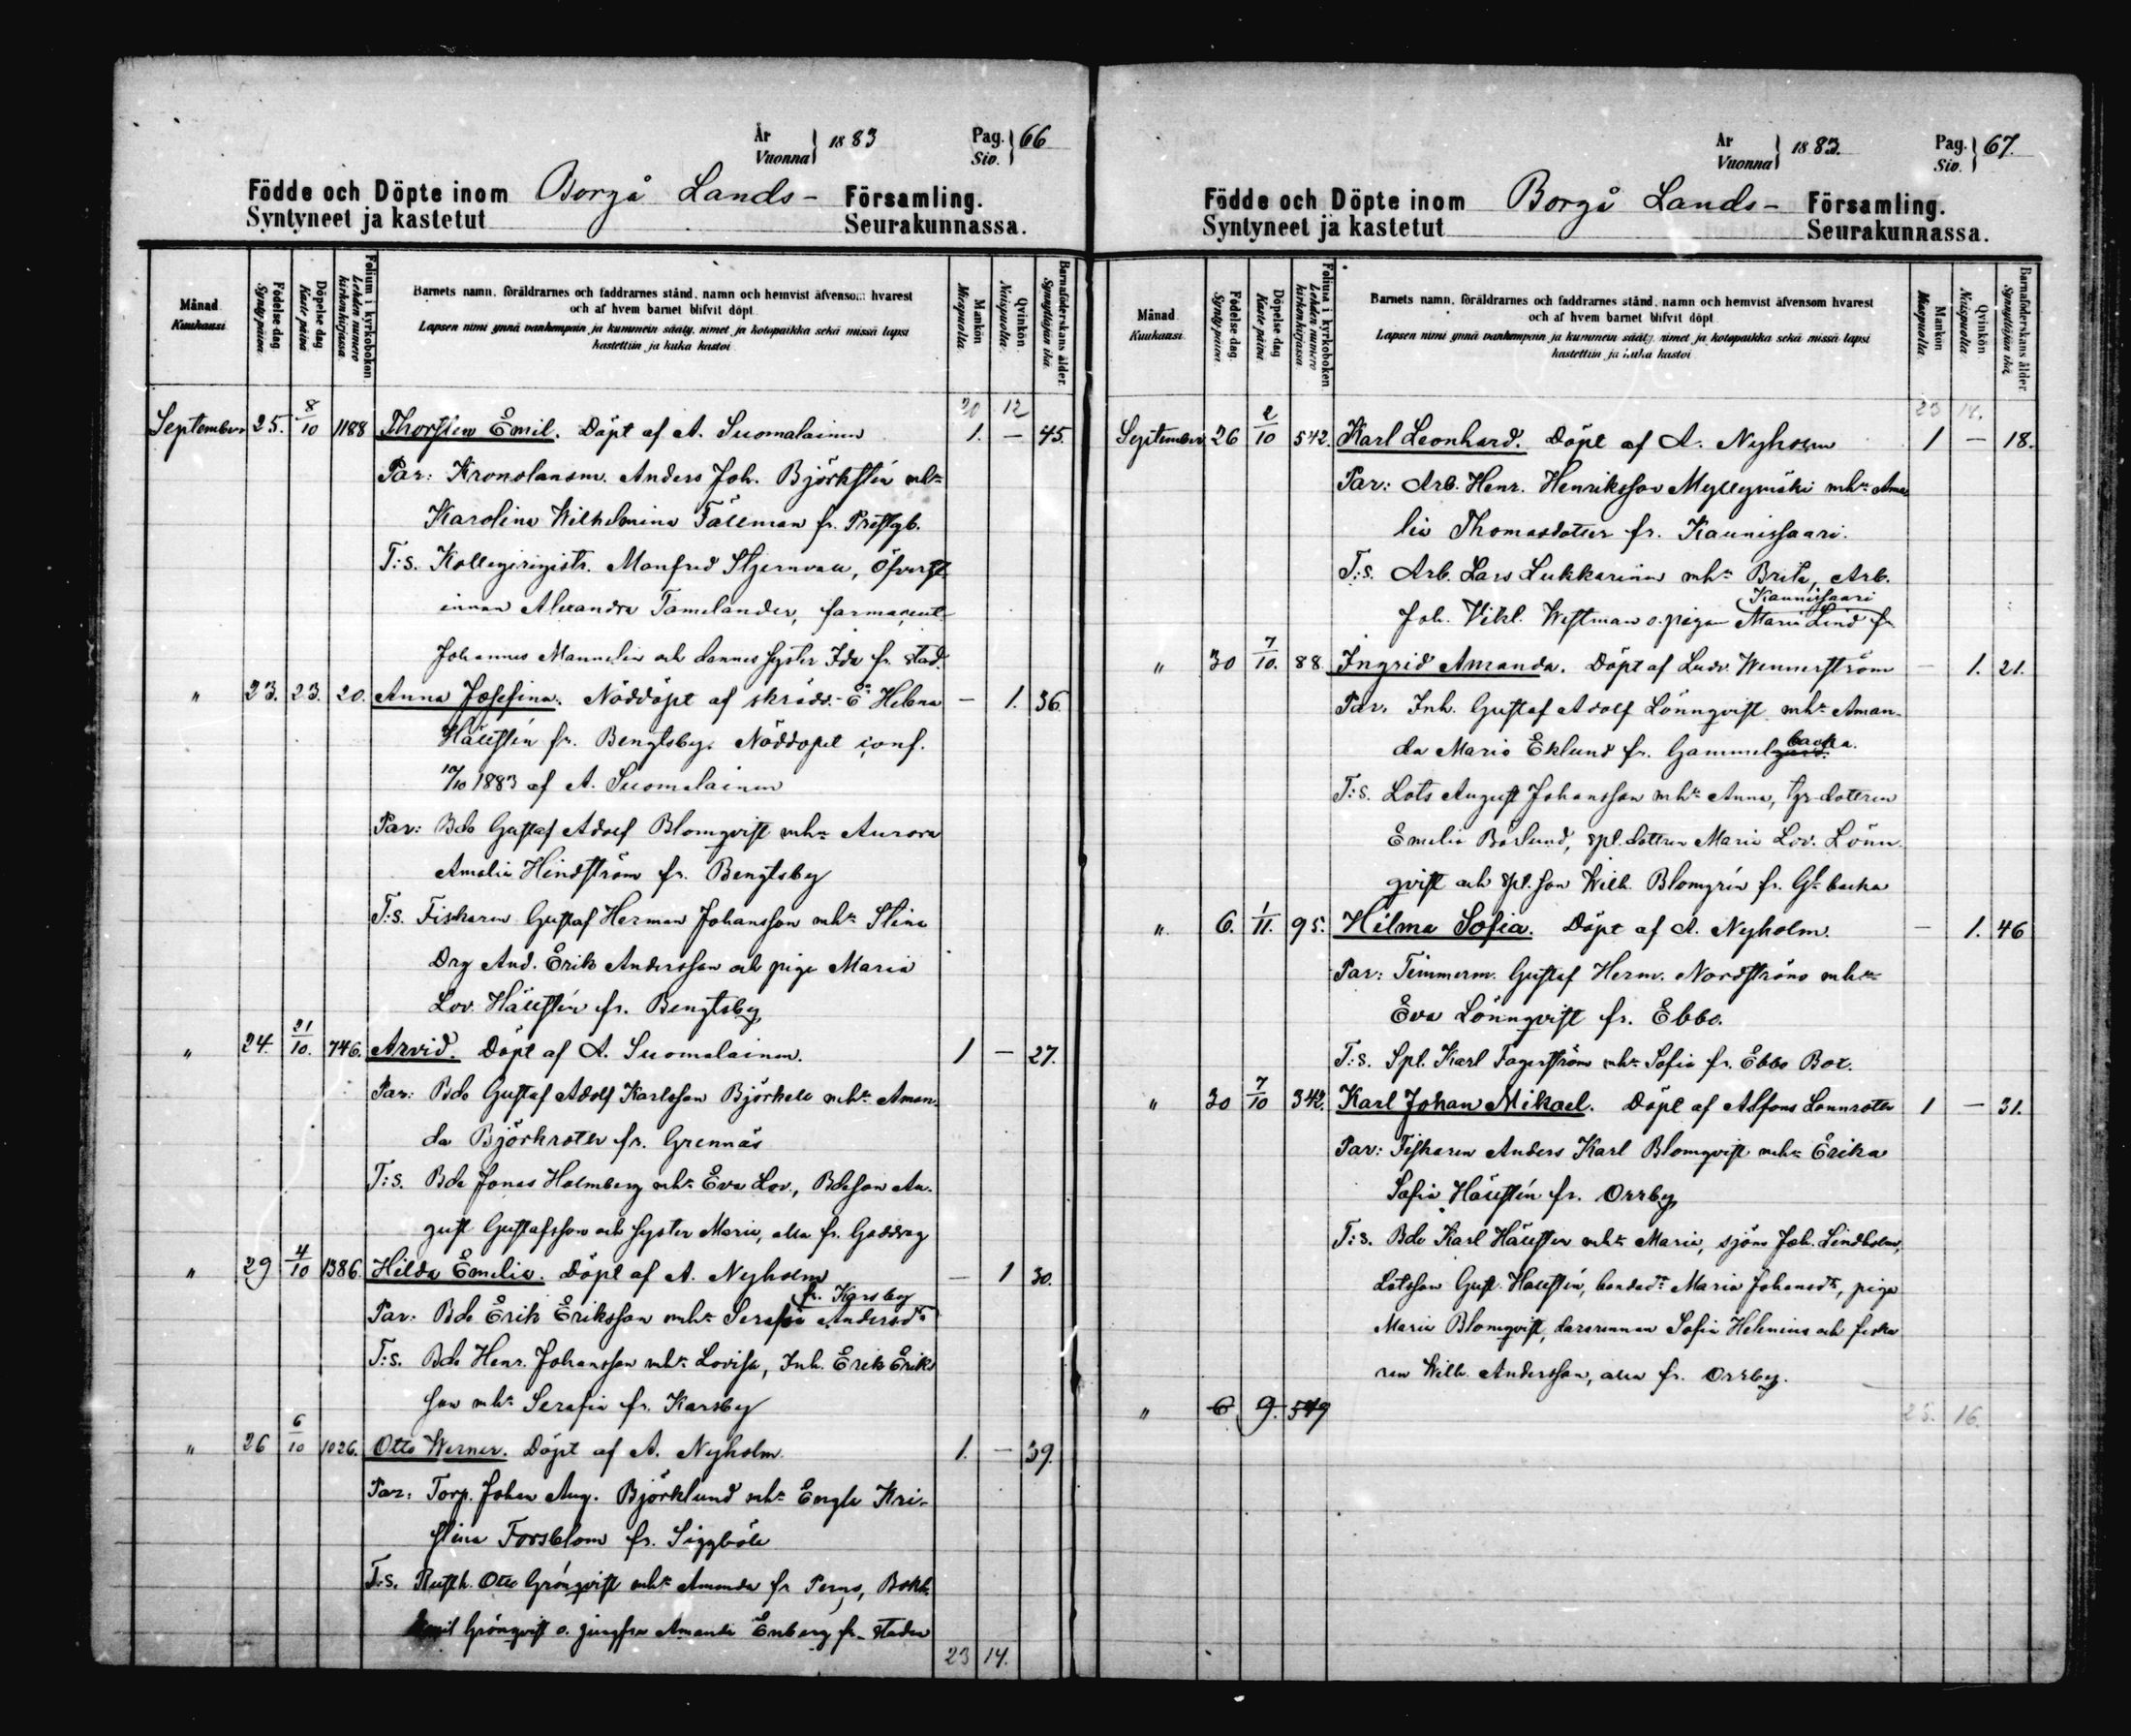 År
Vuonna } 1883
Pag.
Siv. } 66
Födde och Döpte inom Borgå Lands- Församling.
Syntyneet ja kastetut Seurakunnassa.
Månad
Kuukausi
Födelse dag.
Syntypäivä.
Döpelse dag
Kaste päivä
Folium i kyrkoboken
Lehden numero kirkonkirjassa.
Barnets namn, föräldrarnes och faddrarnes stånd, namn och hemvist äfvensom hvarest
och af hvem barnet blifvit döpt
Lapsen nimi ynnä vanhempain ja kummein sääty, nimet ja kotopaikka sekä missä lapsi
kastettiin ja kuka kastoi
Mankön
Miespuolia.
Qvinkön.
Naispuolia.
Barnaföderskans ålder.
Synnyttäjän ikä.
20 12
September 25. 8/10 1188 Thorsten Emil. Döpt af A. Suomalainen 1. — 45.
Par: Kronolänsm. Anders Joh. Björkstén mhu
Karolina Wilhelmina Tallman fr. Prestgb.
T:s. Kollegiiregistr. Manfred Stjernvall, Öfverst
innan Alexandra Tamelander, farmaceut
Johannes Mannelin och dennes syster Ida fr. stad.
" 23. 23. 20. Anna Josefina. Nöddöpt af skrädd. Helena — 1. 36.
Hällstén fr. Bengtsby. Nöddopet conf.
1883 af A. Suomalainen
Par: Bde Gustaf Adolf Blomqvist mhu Aurora
Amalia Hindström fr. Bengtsby
T:s. Fiskaren Gustaf Herman Johansson mhu Stina
Drg And. Erik Andersson och piga Maria
Lov. Hällstén fr. Bengtsby
" 24. 21/10. 746. Arvid. Döpt af A. Suomalainen. 1 — 27.
Par: Bde Gustaf Adolf Karlsson Björkell mhu Aman-
da Björkroth fr. Grennäs
T:s. Bde Jonas Holmberg mhu Eva Lov., Bdeson Au-
gust Gustafsson och syster Maria, alla fr. Gäddrag
" 29 4/10 1386. Hilda Emelia. Döpt af A. Nyholm — 1 30.
fr. Karsby
Par: Bde Erik Eriksson mhu Serafia Andersdr
T:s. Bde Henr. Johansson mhu Lovisa, Inh. Erik Eriks
son mhu Serafia fr. Karsby
" 26 6/10 1026. Otto Werner. Döpt af A. Nyholm 1. — 39.
Par: Torp. Johan Aug. Björklund mhu Engla Kri-
stina Forsblom fr. Siggböle
T:s. Rusth. Otto Grönqvist mhu Amanda fr Perno, Bokh.
Emil Grönqvist o. jungfru Amanda Enberg fr. staden
23 14.
År
Vuonna } 1883.
Pag.
Siv. } 67.
Födde och Döpte inom Borgå Lands- Församling.
Syntyneet ja kastetut Seurakunnassa.
Månad
Kuukausi
Födelse dag.
Syntypäivä.
Döpelse dag
Kaste päivä.
Folium i kyrkoboken
Lehden numero kirkonkirjassa.
Barnets namn, föräldrarnes och faddrarnes stånd, namn och hemvist äfvensom hvarest
och af hvem barnet blifvit döpt
Lapsen nimi ynnä vanhempain ja kummein sääty, nimet ja kotopaikka sekä missä lapsi
kastettiin ja kuka kastoi
Mankön
Miespuolia
Qvinkön
Naispuolia.
Barnaföderskans ålder
Synnyttäjän ikä.
23 14.
September 26 2/10 542. Karl Leonhard. Döpt af A. Nyholm 1 — 18.
Par: Arb. Henr. Henriksson Myllymäki mhu Ama
lia Thomasdotter fr. Kaunissaari.
T:s. Arb. Lars Lukkarinen mhu Brita, Arb.
Kaunissaari
Joh. Vikt. Westman o. pigan Maria Lind fr
" 30 7/10. 88. Ingrid Amanda. Döpt af Ludv. Wennerström — 1. 21.
Par. Inh. Gustaf Adolf Lönnqvist mhu Aman-
da Maria Eklund fr. Gammelbacka.
T:s. Lots August Johansson mhu Anna, dottren
Emelia Båslund, spl. dottren Maria Lov. Lönn
qvist och spl. son Wilh. Blomgrén fr. Gl. backa
" 6. 1/11. 95. Hilma Sofia. Döpt af A. Nyholm. — 1. 46
Par: Timmerm. Gustaf Herm. Nordström mhu
Eva Lönnqvist fr. Ebbo.
T:s. Spl. Karl Fagerström mhu Sofia fr. Ebbo Box.
" 30 7/10 342. Karl Johan Mikael. Döpt af Alfons Lönnroth 1 — 31.
Par: Fiskaren Anders Karl Blomqvist mhu Erika
Sofia Hällstén fr. Orrby
T:s. Bde Karl Hällsten mhu Maria, sjöm Joh. Lindholm,
Lotsson Gust. Hällstén, bondedr Maria Johansdr, piga
Maria Blomqvist, Sofia Helenius och fiska
ren Wilh. Andersson, alla fr. Orrby.
" 6 9. 549
25. 16.